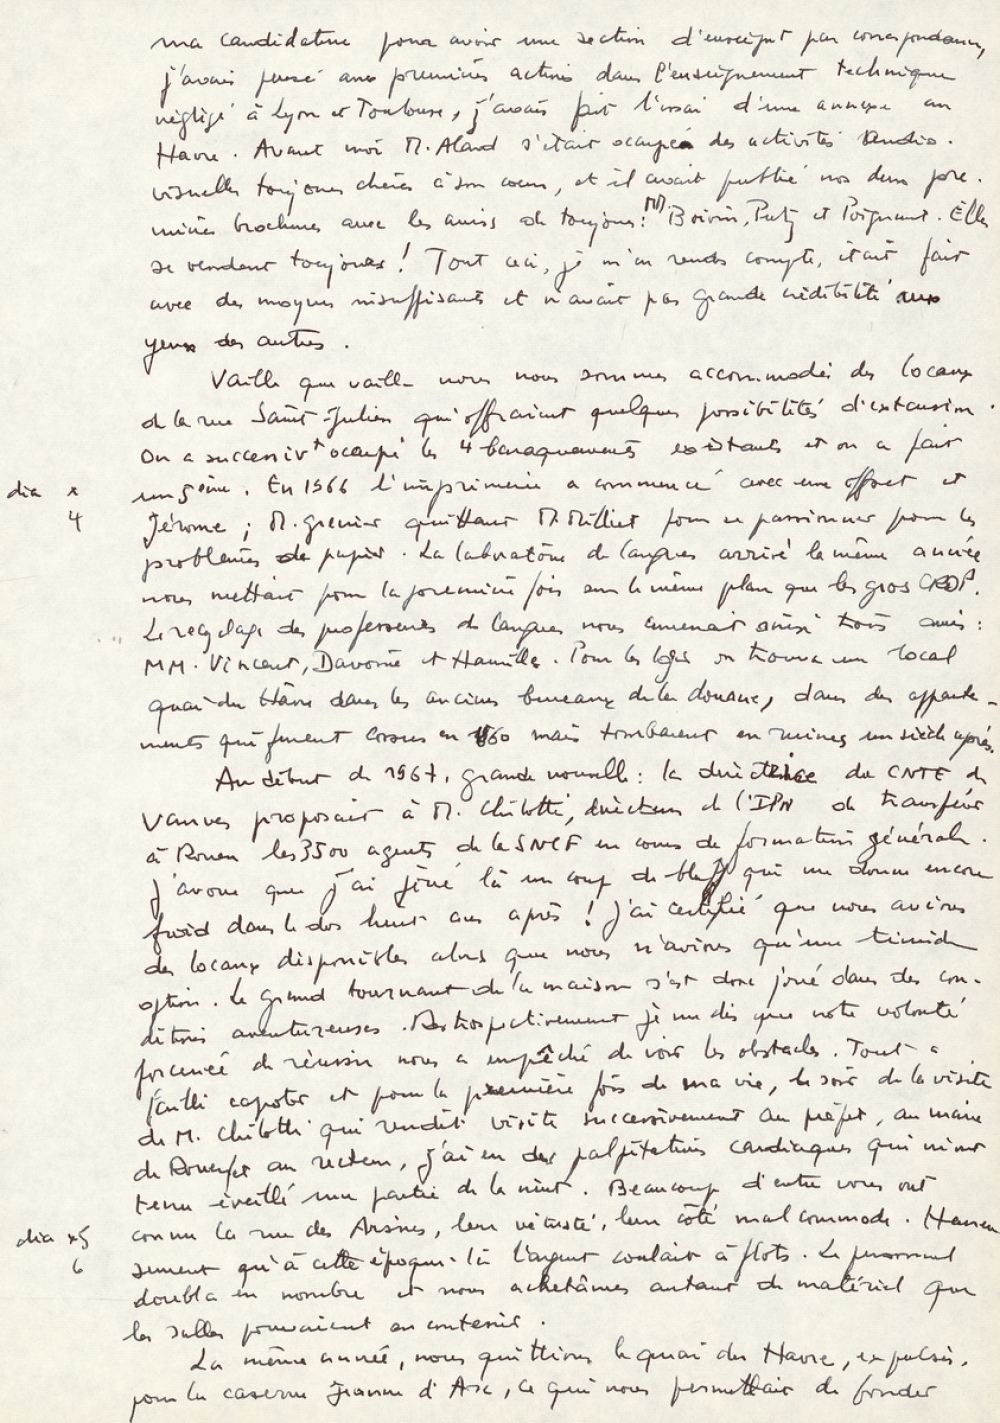 ma candidature pour avoir une section d'enseigt par correspondance,
j'avais pensé aux premières actions dans l'enseignement technique
négligé à Lyon et Toulouse, j'avais fait l'essai d'une annexe au
Havre. Avant moi M. Aland s'était occupé des activités audio-
visuelles toujours chères à son coeur, et il avait publié nos deux pre-
mières brochures avec les amis de toujours : MM Boivin, Putz et Poignant. Elles
se vendent toujours ! Tout ceci, je m'en rends compte, était fait
avec des moyens insuffisants et n'avait pas grande crédibilité aux
yeux des autres.
Vaille que vaille nous nous sommes accommodés des locaux
de la rue Saint-Julien qui offraient quelques possibilités d'extension.
On a successivt occupé les 4 baraquements existants et on a fait
dia x un 5ème. En 1966 l'imprimerie a commencé avec une offset et
4 Jérome ; M. Grenier quittant M. Milliet pour se passionner pour les
problèmes de papier. Le laboratoire de langues arrivé la même année
nous mettait pour la première fois sur le même plan que les gros CRDP.
Le recyclage des professeurs de langues nous amenait ainsi trois amis :
MM. Vincent, Davoine et Hamille. Pour les loger on trouva un local
quai du Havre dans les anciens bureaux de la douane, dans des apparte-
ments qui furent cossus en 1860 mais tombaient en ruines un siècle après.
Au début de 1967, grande nouvelle : la directrice du CNTE de
Vanves proposait à M. Chilotti, directeur de l'IPN de transférer
à Rouen les 3500 agents de la SNCF en cours de formation générale.
J'avoue que j'ai joué là un coup de bluff qui me donne encore
froid dans le dos huit ans après ! J'ai certifié que nous avions
des locaux disponibles alors que nous n'avions qu'une timide
option. Le grand tournant de la maison s'est donc joué dans des con-
ditions aventureuses. Rétrospectivement je me dis que notre volonté
forcenée de réussir nous a empêché de voir les obstacles. Tout a
failli capoter et pour la première fois de ma vie, le soir de la visite
de M. Chilotti qui rendit visite successivement au préfet, au maire
de Rouen et au recteur, j'ai eu des palpitations cardiaques qui m'ont
tenu éveillé une partie de la nuit. Beaucoup d'entre vous ont
dia x5 connu la rue des Arsins, leur vétusté, leur côté malcommode. Heureu
6 sement qu'à cette époque-là l'argent coulait à flots. Le personnel
doubla en nombre et nous achetâmes autant de matériel que
les salles pouvaient en contenir.
La même année, nous quittions le quai du Havre, expulsés,
pour la caserne Jeanne d'Arc, ce qui nous permettait de fonder